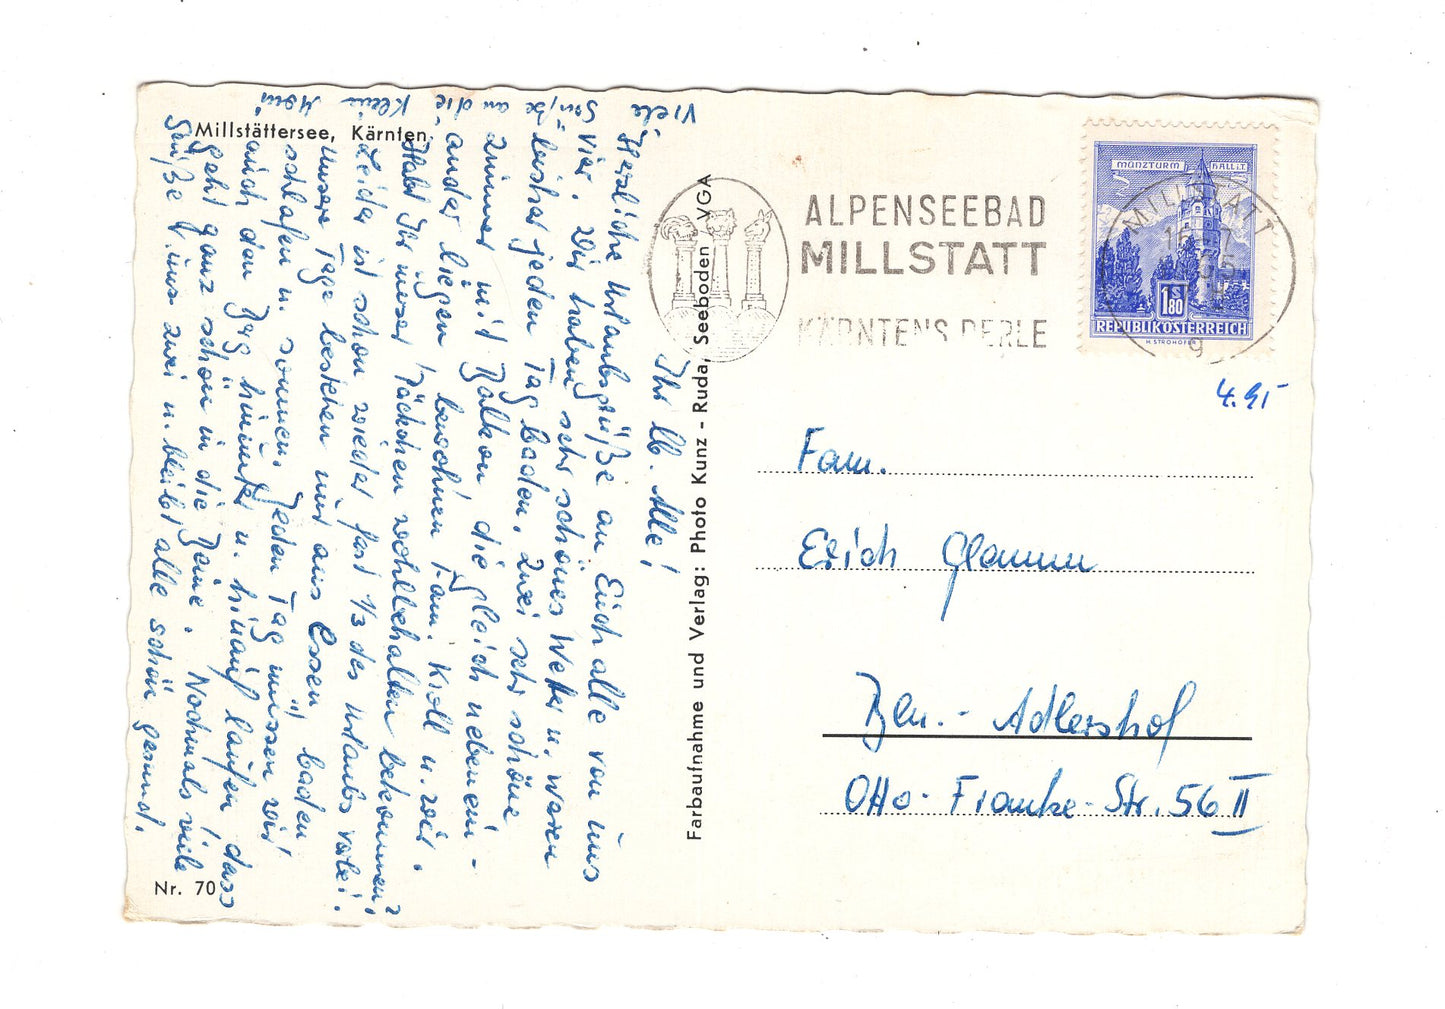 Millstättersee, Kärnten
Ihr lb. Alle!
Herzliche Urlaubsgrüße an Euch alle von uns
Vier. Wir haben sehr schönes Wetter u. waren
bisher jeden Tag baden. Zwei sehr schöne
Zimmer mit Balkon, die gleich nebenein-
ander liegen bewohnen Fam. Kroll u. wir.
Habt Ihr unser Päckchen wohlbehalten bekommen?
Leider ist schon wieder fast 1/3 des Urlaubs vorbei!
Unsere Tage bestehen nur aus Essen, baden
schlafen u. sonnen. Jeden Tag müssen wir
auch den Berg hinunter u. hinauf laufen, dass
geht ganz schön in die Beine. Nochmals viele
Grüße v. uns zwei u. bleibt alle schön gesund.
Viele
Grüße an die
Klein
Nr. 70
Farbaufnahme und Verlag: Photo Kunz - Ruda, Seeboden VGA
ALPENSEEBAD
MILLSTATT
KÄRNTENS PERLE
MÜNZTURM HALL i.T.
1.80
S
REPUBLIK ÖSTERREICH
H. STROHOFER
MILLSTATT
9
Fam.
Erich Glamm
Bln.- Adlershof
Otto-Franke-Str. 56 II